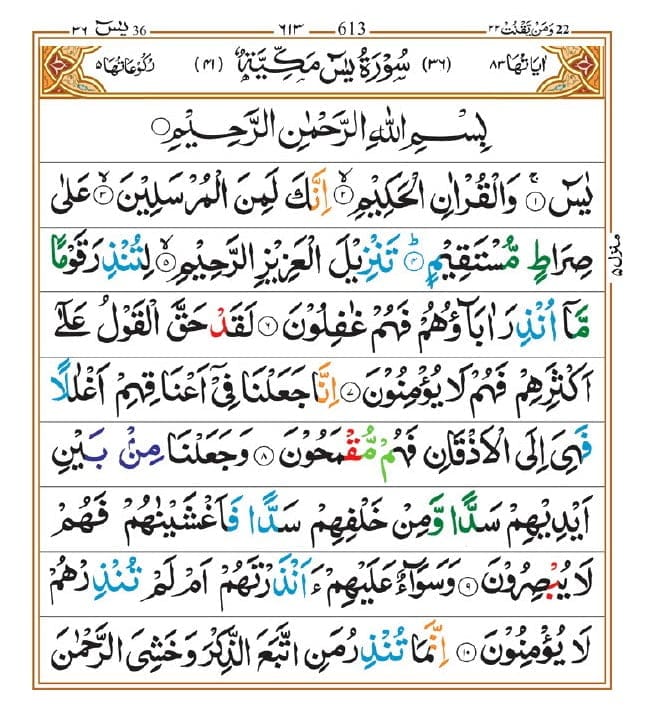 یٰسٓ 36 ٣٦ 613 ٦١٣ وَمَنْ یَّقْنُتْ 22 ٢٢
اٰیَاتُهَا ٨٣ (٣٦) سُوْرَةُ یٰسٓ مَكِّیَّةٌ (٤١) رُكُوْعَاتُهَا ٥
بِسْمِ اللّٰهِ الرَّحْمٰنِ الرَّحِیْمِ ○
یٰسٓ ۚ ﴿١﴾ وَالْقُرْاٰنِ الْحَكِیْمِ ۙ ﴿٢﴾ اِنَّكَ لَمِنَ الْمُرْسَلِیْنَ ۙ ﴿٣﴾ عَلٰی
صِرَاطٍ مُّسْتَقِیْمٍ ؕ ﴿٤﴾ تَنْزِیْلَ الْعَزِیْزِ الرَّحِیْمِ ۙ ﴿٥﴾ لِتُنْذِرَ قَوْمًا
مَّاۤ اُنْذِرَ اٰبَآؤُهُمْ فَهُمْ غٰفِلُوْنَ ﴿٦﴾ لَقَدْ حَقَّ الْقَوْلُ عَلٰۤی
اَكْثَرِهِمْ فَهُمْ لَا یُؤْمِنُوْنَ ﴿٧﴾ اِنَّا جَعَلْنَا فِیْۤ اَعْنَاقِهِمْ اَغْلٰلًا
فَهِیَ اِلَی الْاَذْقَانِ فَهُمْ مُّقْمَحُوْنَ ﴿٨﴾ وَجَعَلْنَا مِنْۢ بَیْنِ
اَیْدِیْهِمْ سَدًّا وَّمِنْ خَلْفِهِمْ سَدًّا فَاَغْشَیْنٰهُمْ فَهُمْ
لَا یُبْصِرُوْنَ ﴿٩﴾ وَسَوَآءٌ عَلَیْهِمْ ءَاَنْذَرْتَهُمْ اَمْ لَمْ تُنْذِرْهُمْ
لَا یُؤْمِنُوْنَ ﴿١٠﴾ اِنَّمَا تُنْذِرُ مَنِ اتَّبَعَ الذِّكْرَ وَخَشِیَ الرَّحْمٰنَ
منزل ٥